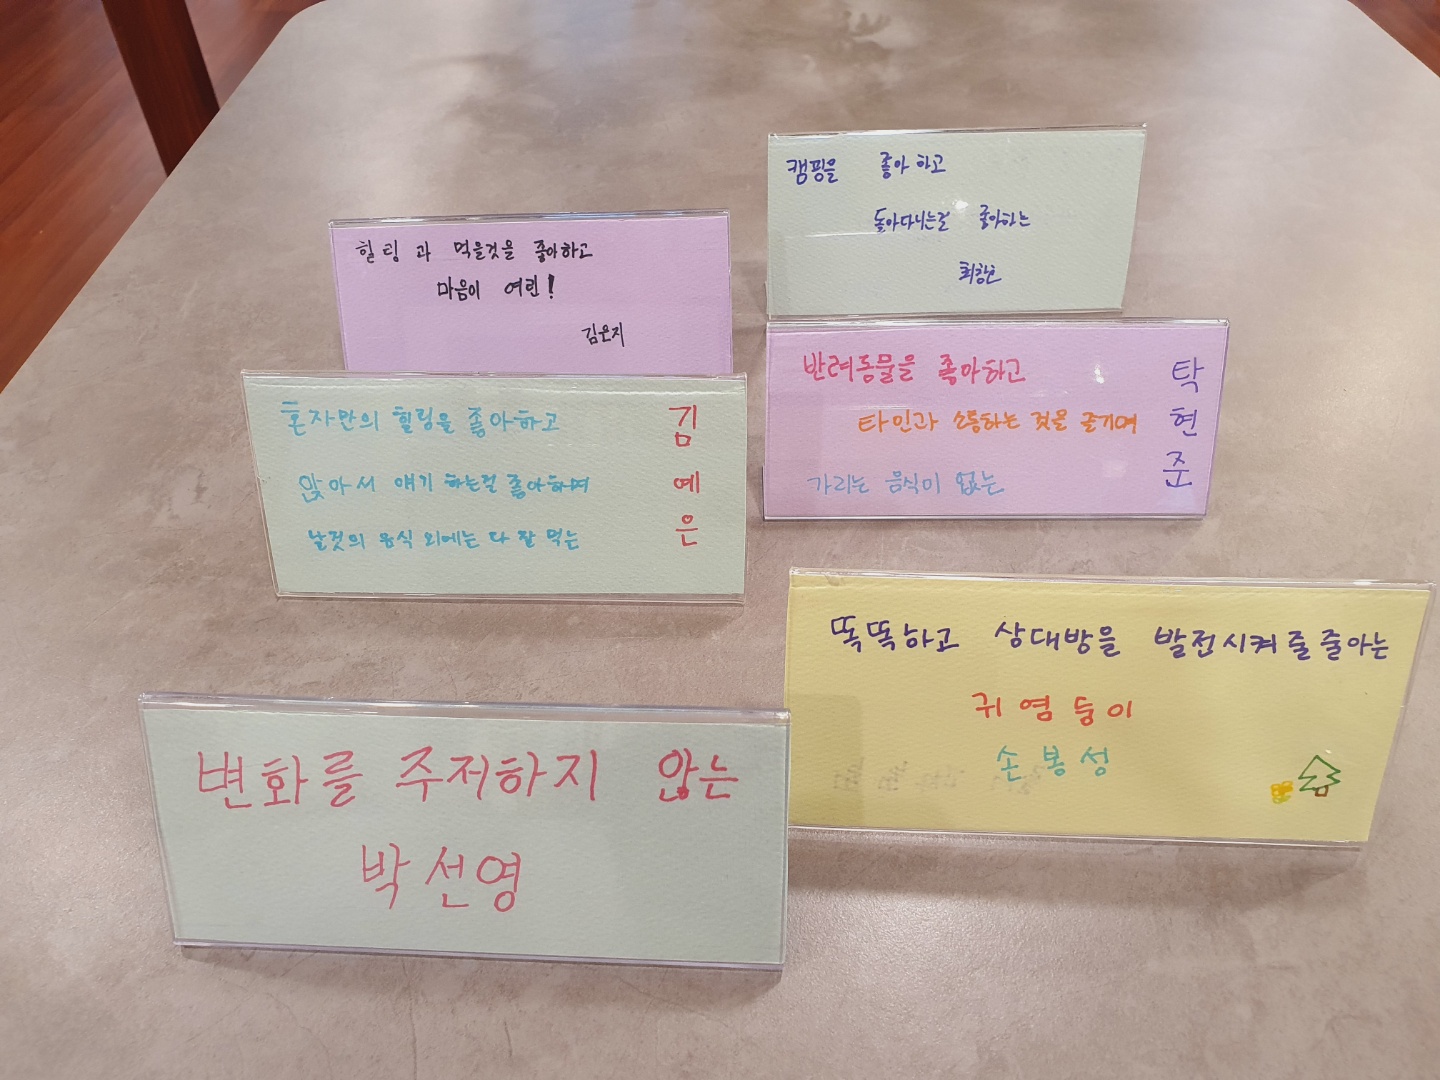 캠핑을 좋아하고
돌아다니는걸 좋아하는
힐링과 먹을것을 좋아하고
마음이 여린!
김은지
반려동물을 좋아하고
타인과 소통하는 것을 즐기며
가리는 음식이 없는
탁현준
혼자만의 힐링을 좋아하고
앉아서 얘기 하는걸 좋아하며
날것의 음식 외에는 다 잘 먹는
김예은
똑똑하고 상대방을 발전시켜줄줄아는
귀염둥이
손봉성
변화를 주저하지 않는
박선영